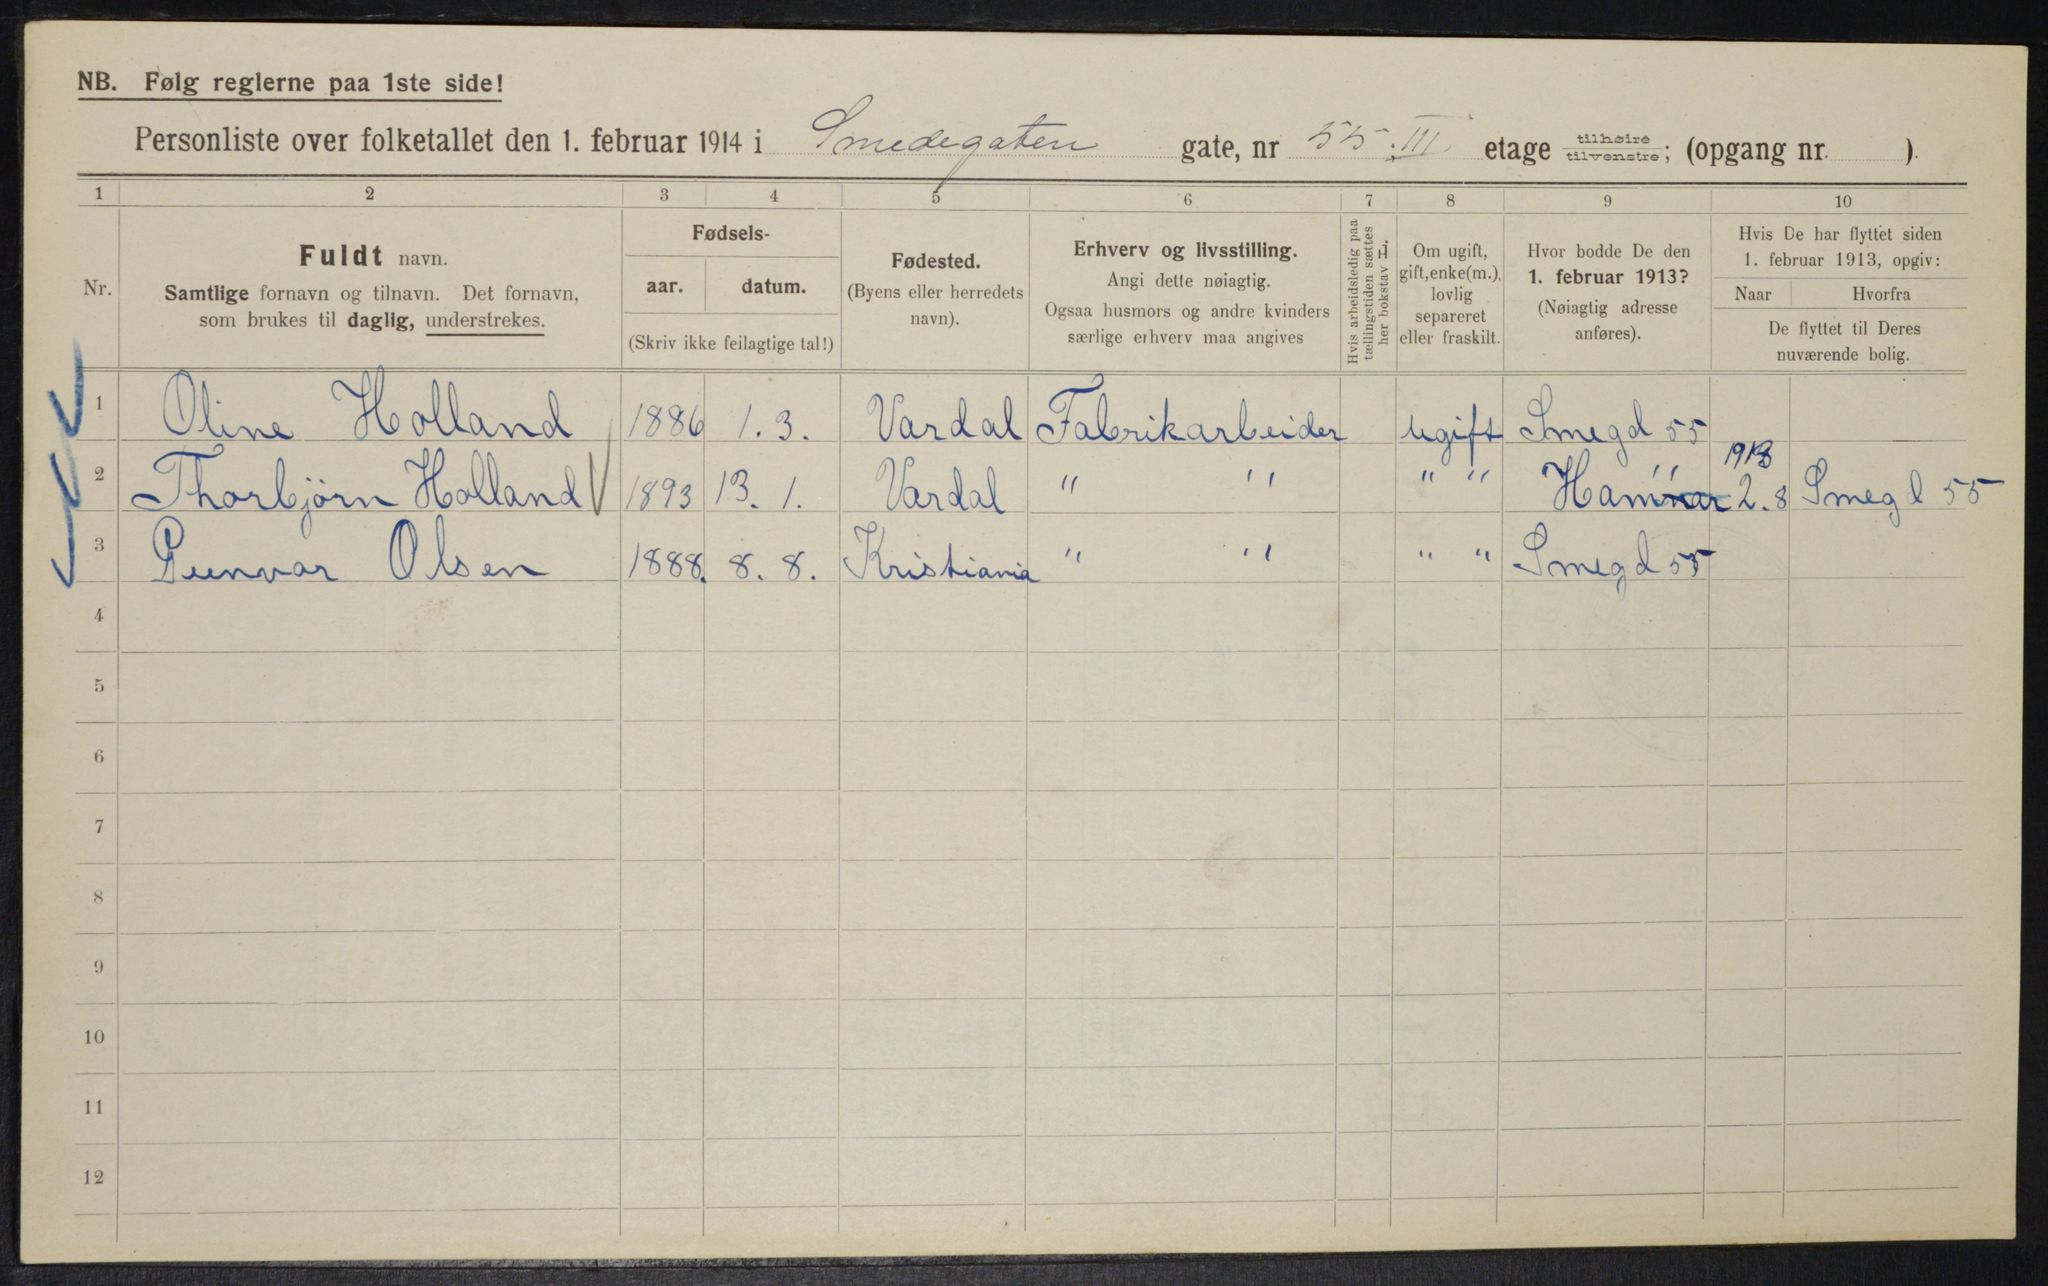 NB. Følg reglerne paa 1ste side!
Personliste over folketallet den 1. februar 1914 i Smedegaten gate, nr 55. III etage tilhøire tilvenstre; (opgang nr. ).
1 2 3 4 5 6 7 8 9 10
Nr.
Fuldt navn.
Samtlige fornavn og tilnavn. Det fornavn,
som brukes til daglig, understrekes.
Fødsels-
aar. datum.
(Skriv ikke feilagtige tal!)
Fødested.
(Byens eller herredets
navn).
Erhverv og livsstilling.
Angi dette nøiagtig.
Ogsaa husmors og andre kvinders
særlige erhverv maa angives
Hvis arbeidsledig paa
tællingstiden sættes
her bokstav L.
Om ugift,
gift, enke(m.),
lovlig
separeret
eller fraskilt.
Hvor bodde De den
1. februar 1913?
(Nøiagtig adresse
anføres).
Hvis De har flyttet siden
1. februar 1913, opgiv:
Naar Hvorfra
De flyttet til Deres
nuværende bolig.
1 Oline Holland 1886 1. 3. Vardal Fabrikarbeider ugift Smegd 55
2 Thorbjørn Holland 1893 13. 1. Vardal " " " " Hammar 1913 2. 8 Smegd 55
3 Gunvor Olsen 1888. 8. 8. Kristiania " " " " Smegd 55
4
5
6
7
8
9
10
11
12